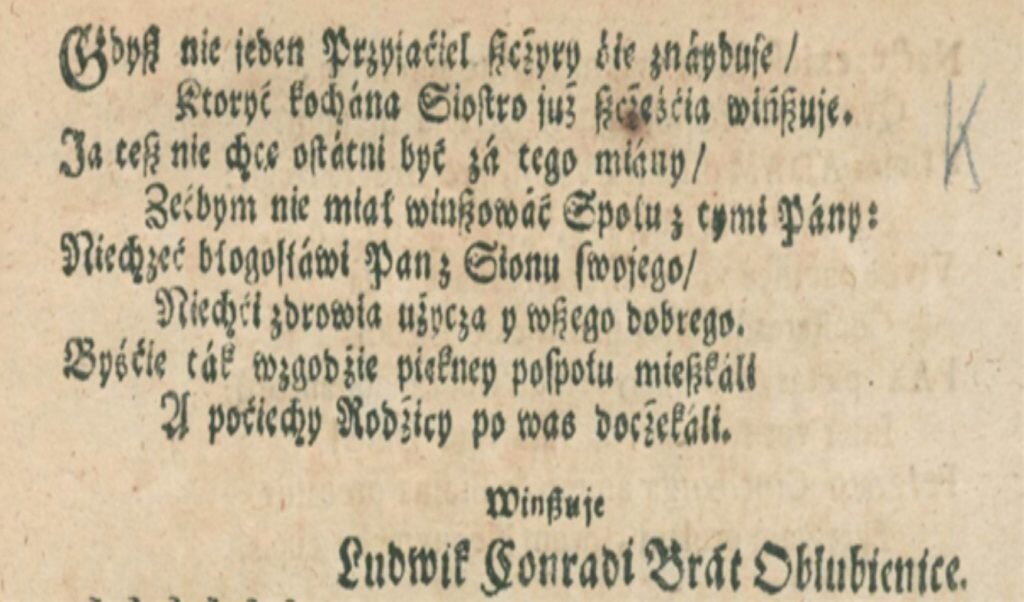 Gdyß nie jeden Przyjaćiel ßcżyry ćie znáyduſe /
Ktoryć kochána Sioſtro już ßcżęśćia wińßuje.
Ja teß nie chce oſtátni być zá tego miány /
Zećbym nie miał winßowáć Społu z tymi Pány:
Niechzeć błogoſłáwi Pan z Sionu ſwojego /
Niechći zdrowia użycza y wßego dobrego.
Byśćie ták wzgodżie piekney poſpołu mießkáli
A poćiechy Rodżicy po was docżekáli.
Winßuje
Ludwik Conradi Brát Oblubienice.
K